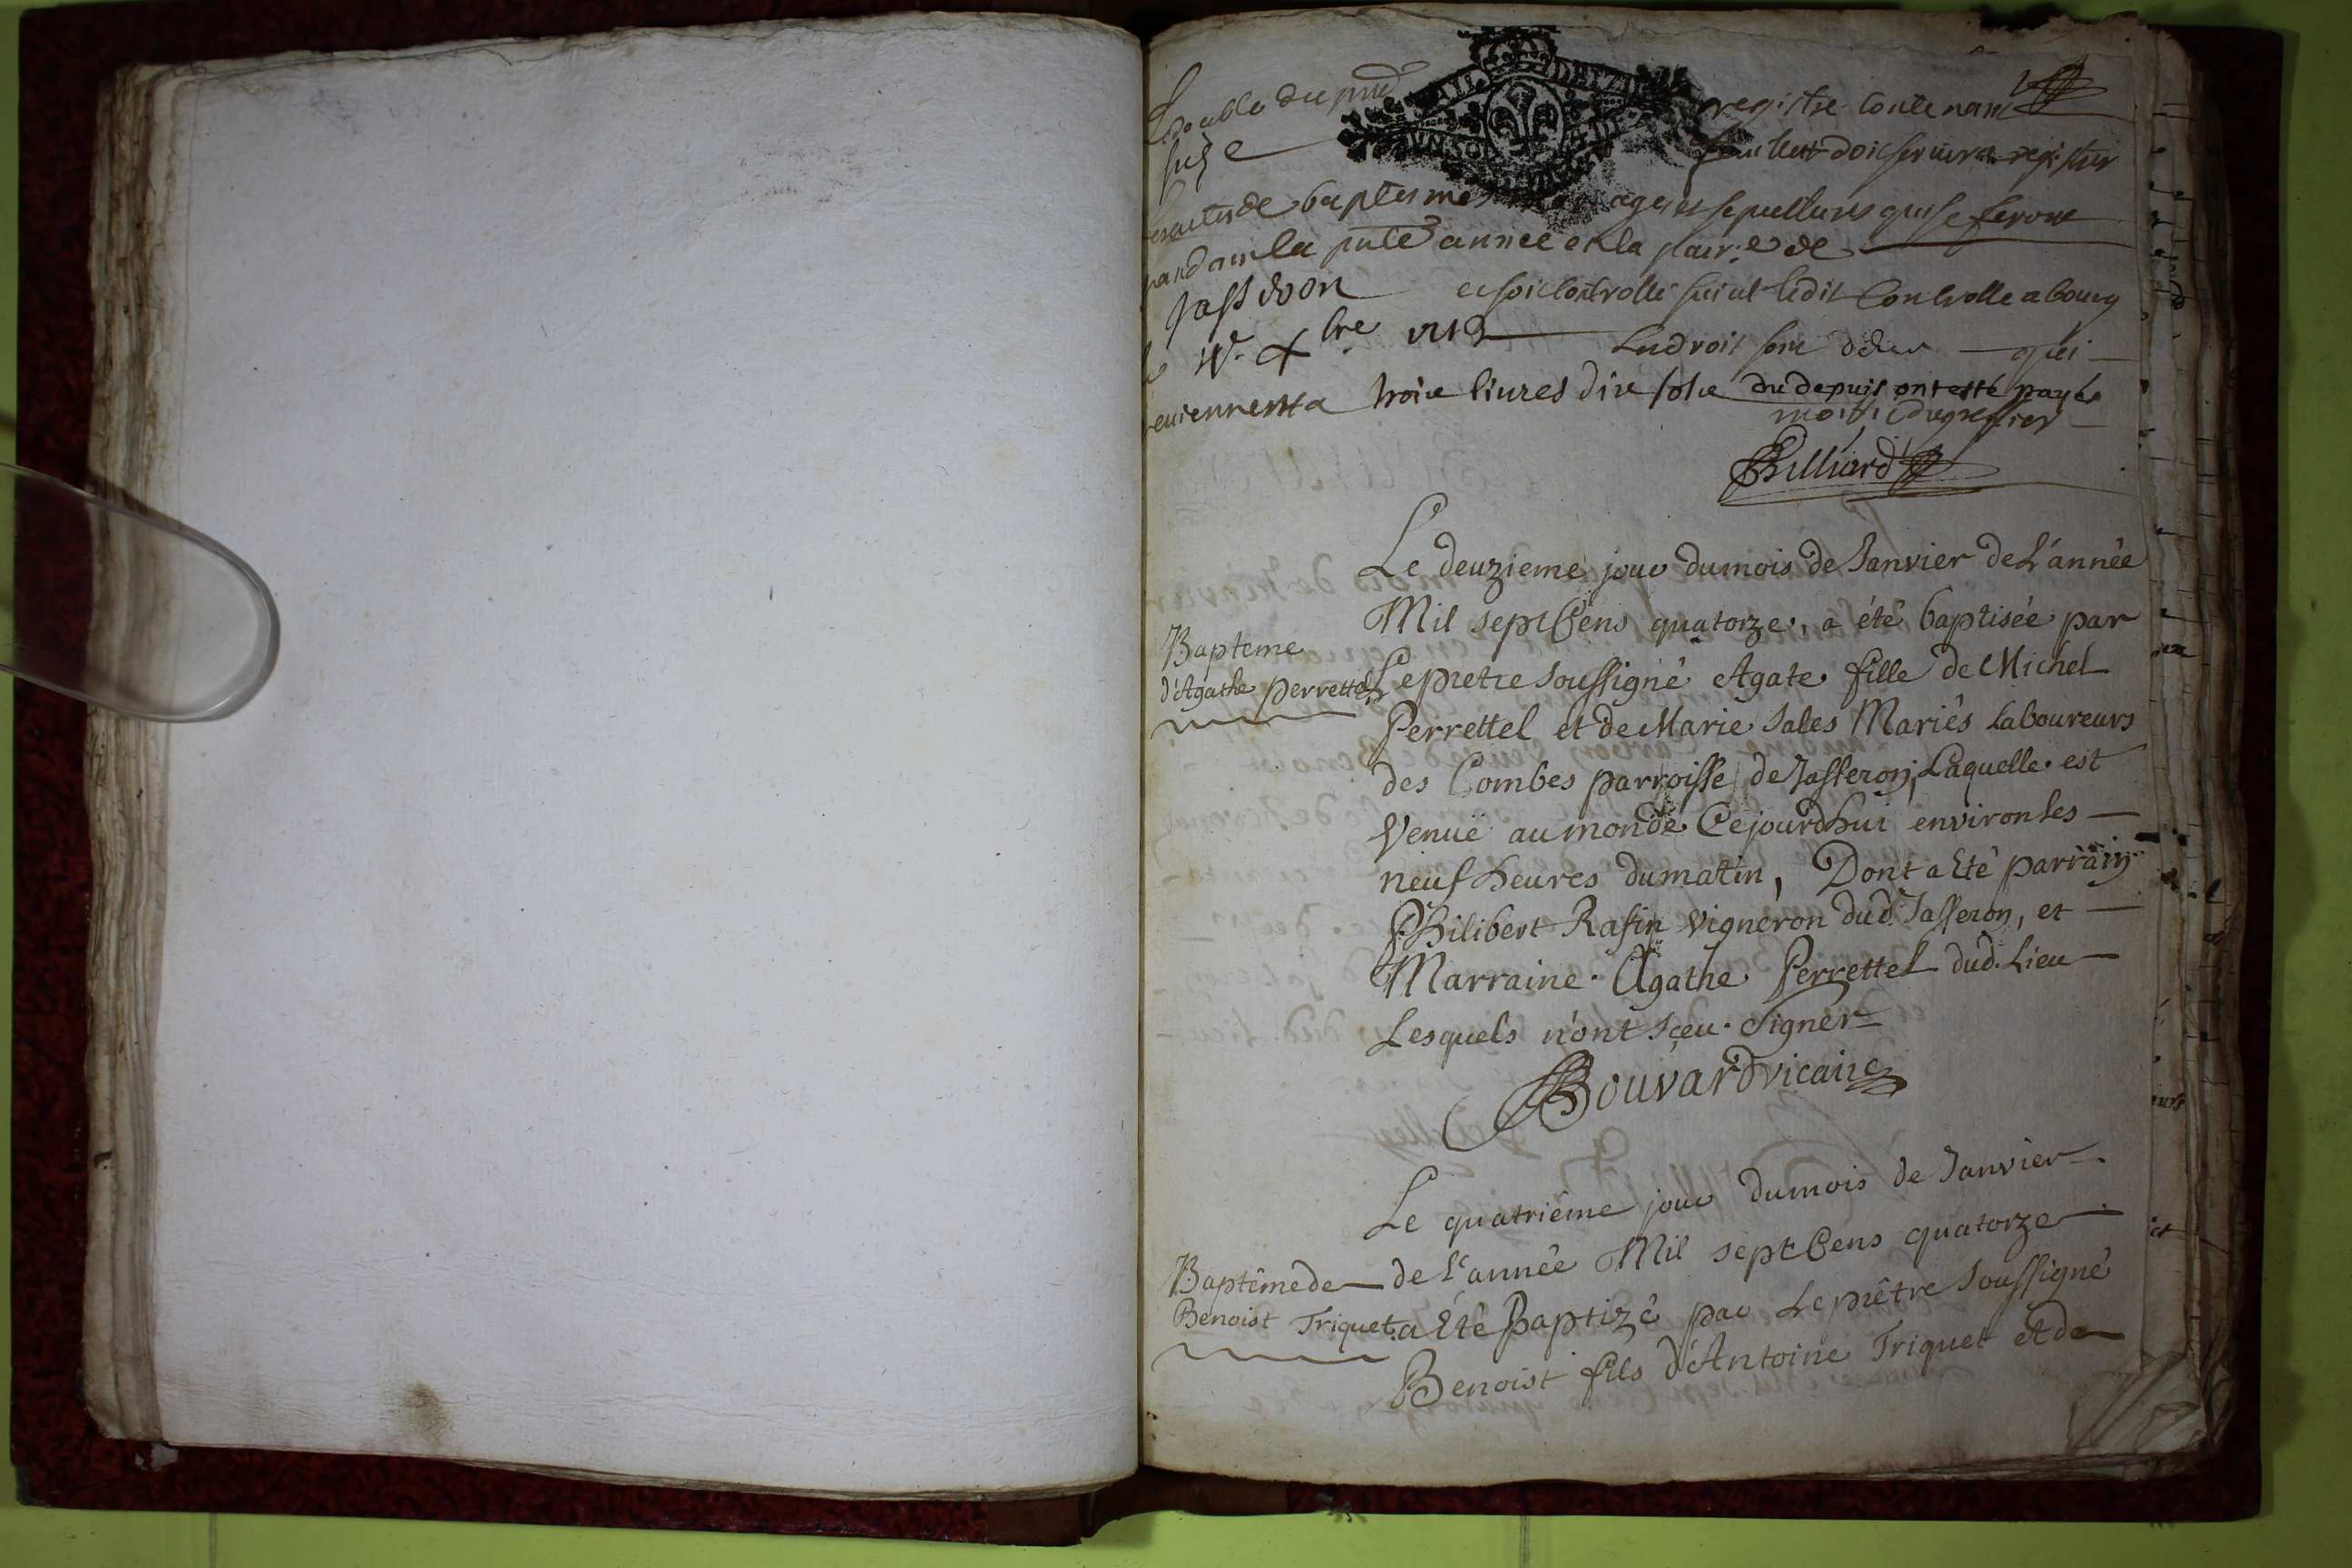 Le double du pnt registre Contenant
seize feuillets doit servir a registrer
les actes de baptesmes mariages et sepultures qui se feront
pendant la pnte année en la parr.e de
Jasseron et soit Controllé suivt ledit Controlle a bourg
le xbre 1713 Les droits sont deus qui
reviennent a trois livres dix sols du depuis ont esté payés
moitié du greffier
Billiard
Le deuzieme jour du mois de Janvier de L'année
Mil sept Cens quatorze, a été baptisée par
Bapteme
d'Agathe perrettel
Le pretre soussigné Agate fille de Michel
Perrettel et de Marie Sales Mariés Laboureurs
des Combes parroisse de Jasseron, Laquelle est
Venuë au monde Cejourdhui environ les
neuf heures du matin, Dont a Eté parrain
Philibert Rafin Vigneron dud. Jasseron, et
Marraine Agathe Perrettel dud. Lieu
Lesquels n'ont sçeu signer
Bouvard vicaire
Le quatriéme jour du mois de Janvier
Baptême de
Benoist Triquet
de L'année Mil sept Cens quatorze
a Eté Baptizé par Le prêtre soussigné
Benoist fils d'Antoine Triquet et de